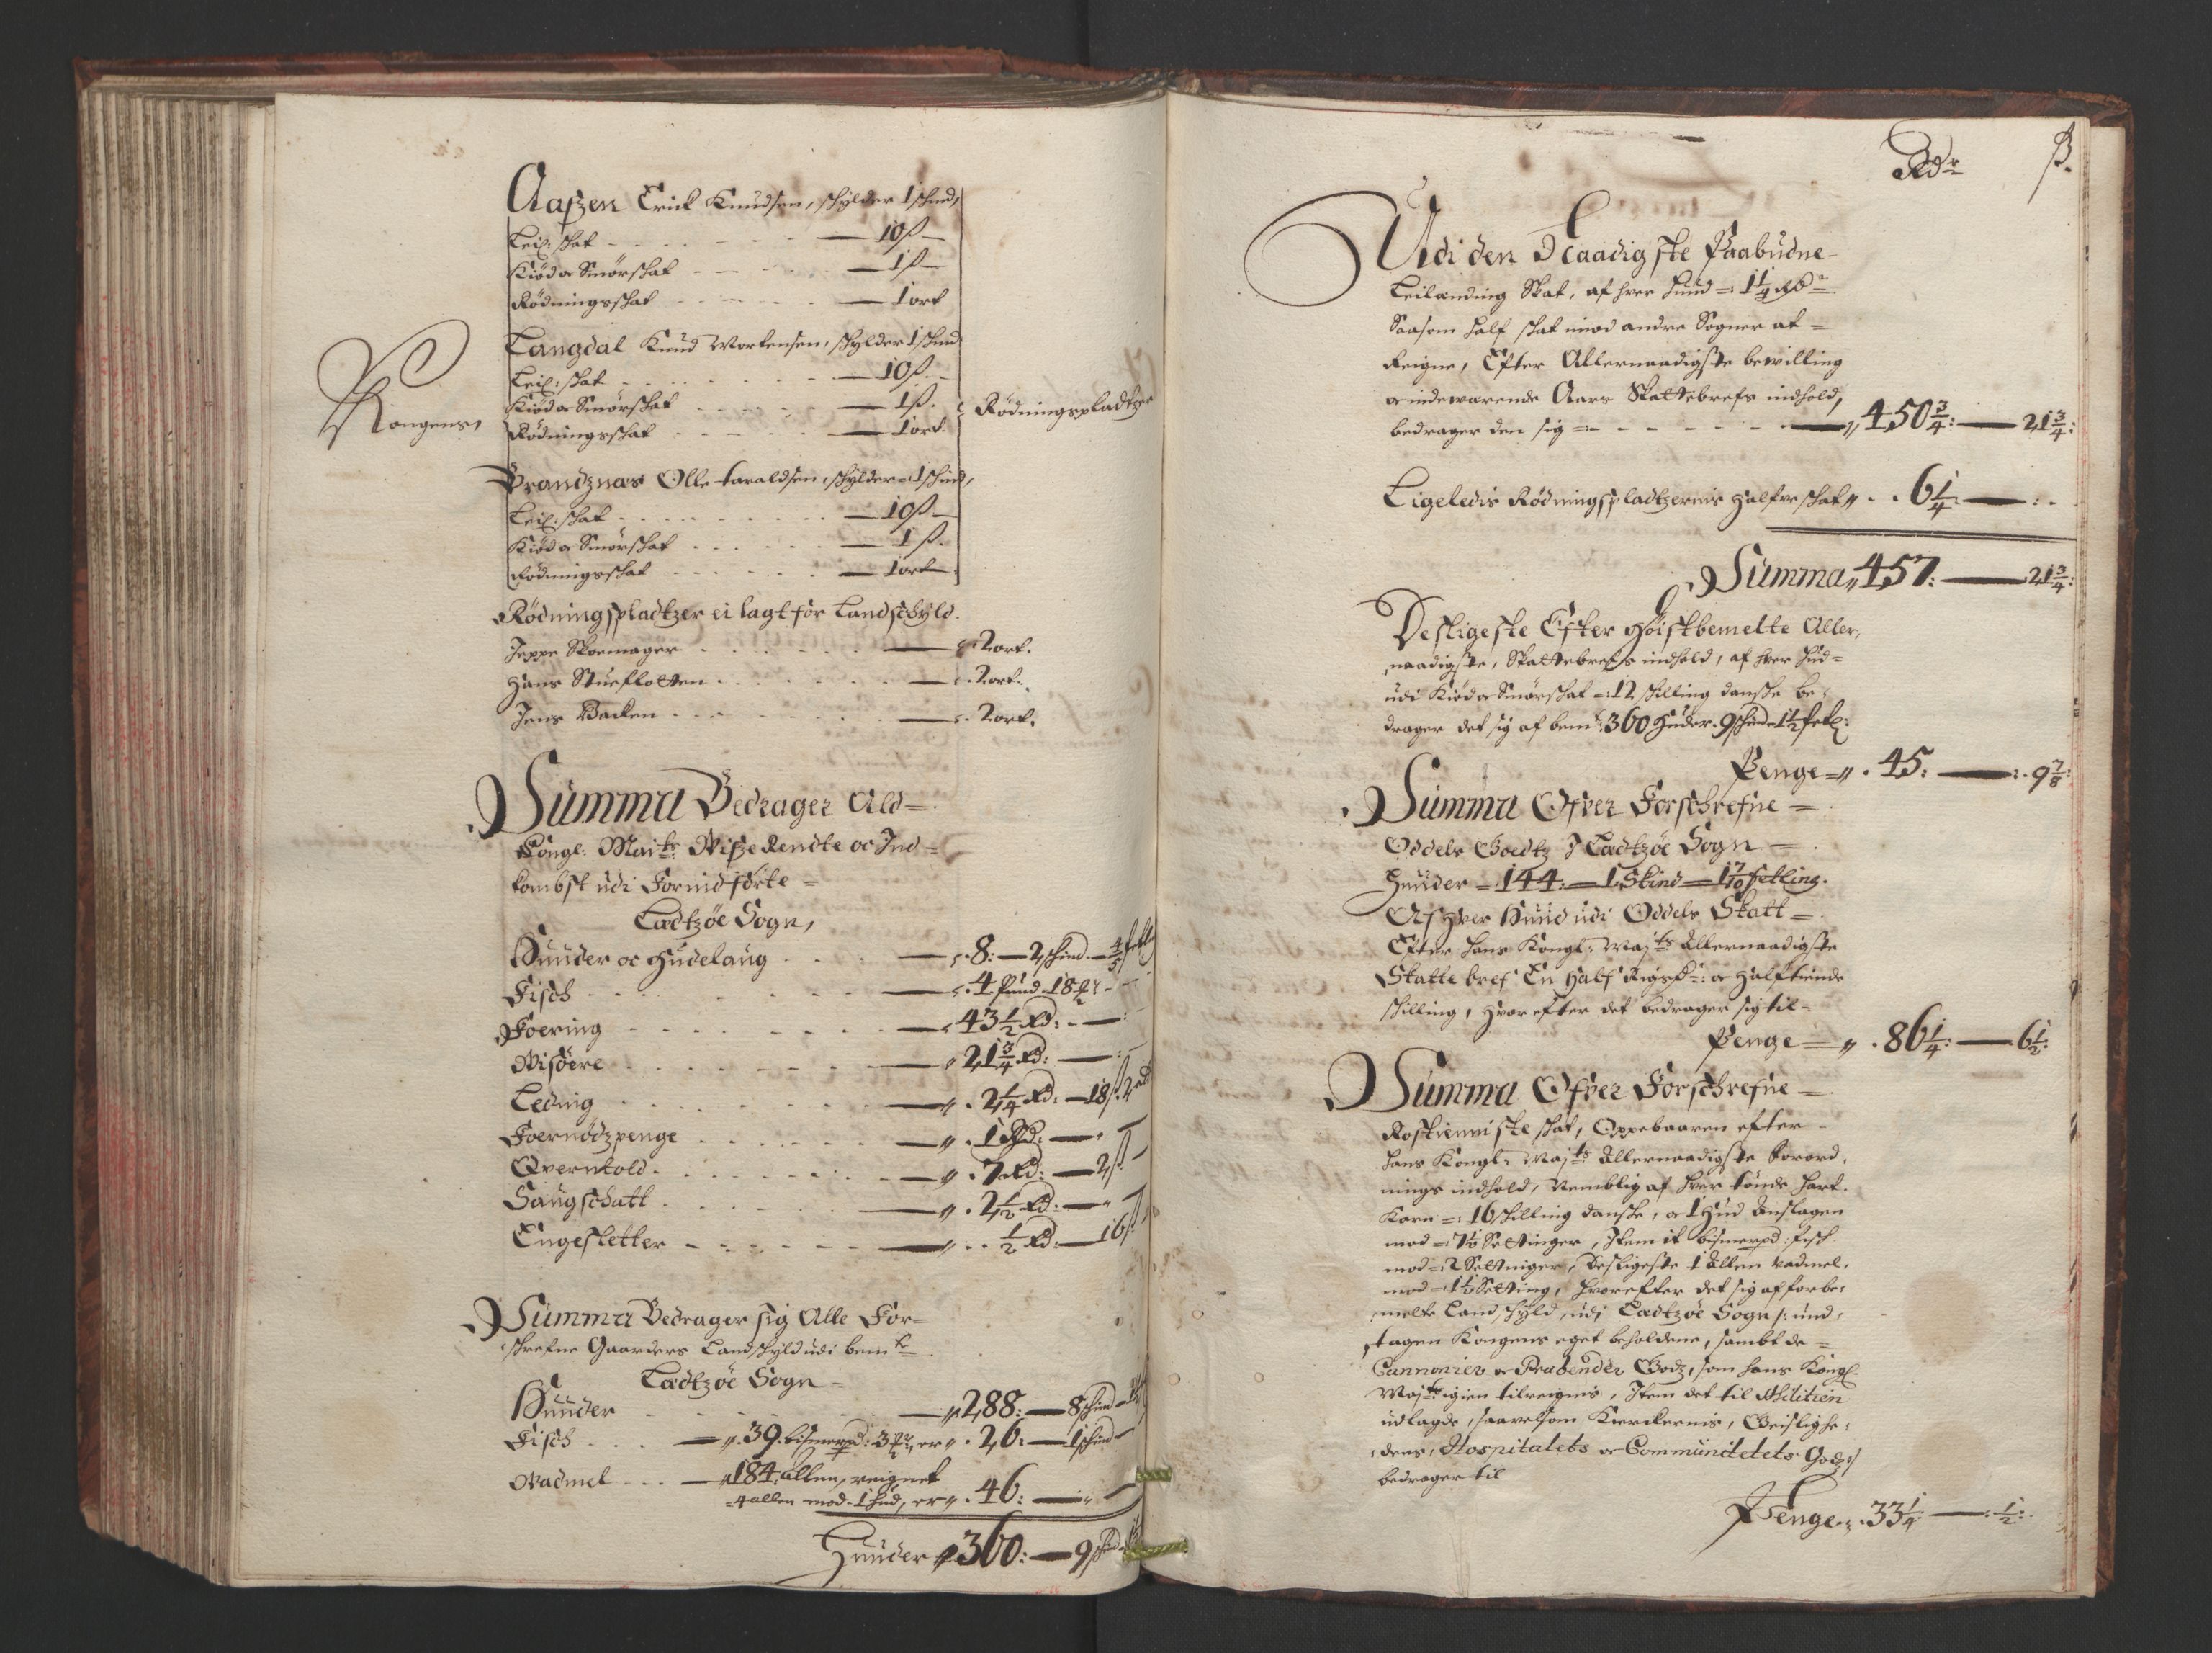 Aaszen Erick Knudsen, schylder 1 schind,
Leil: skat - - - 10 ß
Kiöd oc Smörskat - - - 1 ß
Rödningsskat - - - 1 ort
Langdal Knud Mortensen, schylder 1 schind
Leil: skat - - - 10 ß.
Kiöd oc Smörskat - - - 1 ß.
Rödningsskat - - - 1 ort.
Kongens,
Rödningspladtzer
Brandznæs Olle taraldsen, schylder 1 schind,
Leil: skat - - - 10 ß
Kiöd oc Smörskat - - - 1 ß.
Rödningsskat - - - 1 ort
Rödningspladtzer ei lagt for Landschyld.
Jeppe Skoemager - - - 2 ort.
Hans Stuefloetten - - - 2 ort.
Jens Backen - - - 2 ort.
Summa Bedrager Ald=
Kongl: Maits Visze Rendte oc Ind=
kombst udi Fornefdte
Lædtzöe Sogn,
Huuder oc Hudelaug - - - 8: — 2 schind — 4/5
Fisch - - - 4 Pund 18
Foering - - - 43 1/2 Rd: —
Visöere - - - 21 3/4 Rd: —
Leding - - - 2 1/4 Rd: — 18 ß 2
Foernödzpenge - - - 1 Rd: —
Qverntold - - - 7 Rd: — 2 ß
Saugschatt - - - 2 1/2 Rd: —
Engesletter - - - 1/2 Rd: — 16 ß
Summa Bedrager sig Alle For=
schrefne Gaarders Landschyld udi bemte
Lædtzöe Sogn
Huuder - - - 288: — 8 schind
Fisch - - - 39 bismerpd: 3 er 26: — 1 schind
Vadmel - - - 184 allen, reignet
4 allen mod 1 hud, er 46: —
Huuder 360: — 9 schind
Rdr ß.
Udi den Naadigste Paabudne
Leilending Skat, af hver hud = 1 1/4 Rdr
Saasom half skat imod andre Sogner at=
Reigne, Efter Allernaadigste bewilling
oc indewarende Aars Skattebrefs indhold,
bedrager den sig - - - 450 3/4: — 21 3/4:
Ligeledis Rödningspladtzernis halfve skat - - 6 1/4: —
Summa 457: — 21 3/4:
Desligeste Efter Höistbemelte Aller,
naadigste, Skattebrefs indhold, af hver hud=
udi Kiöd oc Smörskat = 12 skilling danske be=
drager det sig af bemte 360 Huder 9 schind 1 1/2
Penge = 45: — 9 7/8:
Summa Ofver Forschrefne
Oddels Goedtz I Lædtzöe Sogn
Huuder = 144: — 1 Skind — 1 7/10 setling.
Af Hver Huud udi Oddels Skatt
Efter Hans Kongl: Maits Allernaadigste
Skatte bref En Half Rigsdr: oc Halftiende
skilling, Hvorefter det bedrager sig til
Penge = 86 1/4: — 6 1/2:
Summa Ofver Forschrefne
Rostienniste skat, Oppebaaren efter
Hans Kongl: Maits Allernaadigste Forord,
nings indhold, Nemblig af hver tönde hart.
Korn = 16 skilling danske, oc 1 Hud Anslagen
mod = 7 1/2 Settinger, Item it bismerpd: fisch
mod = 2 Settinger, Desligeste 1 Allen Vadmel,
mod = 1 1/2 Setting, Hvorefter det sig af forbe=
melte Landschyld, udi Lædtzöe Sogn /: und,
tagen Kongens eget beholdene, sambt de=
Cannonier oc Præbender Godz, som Hans Kongl
Maits igien tilreignis, Item det til Militien
udlagde, saavelsom Kierckernis, Geisligehe=
dens, Hospitalets oc Communitetets Godz :/
bedrager til
Penge - 33 1/4: — 1/2: